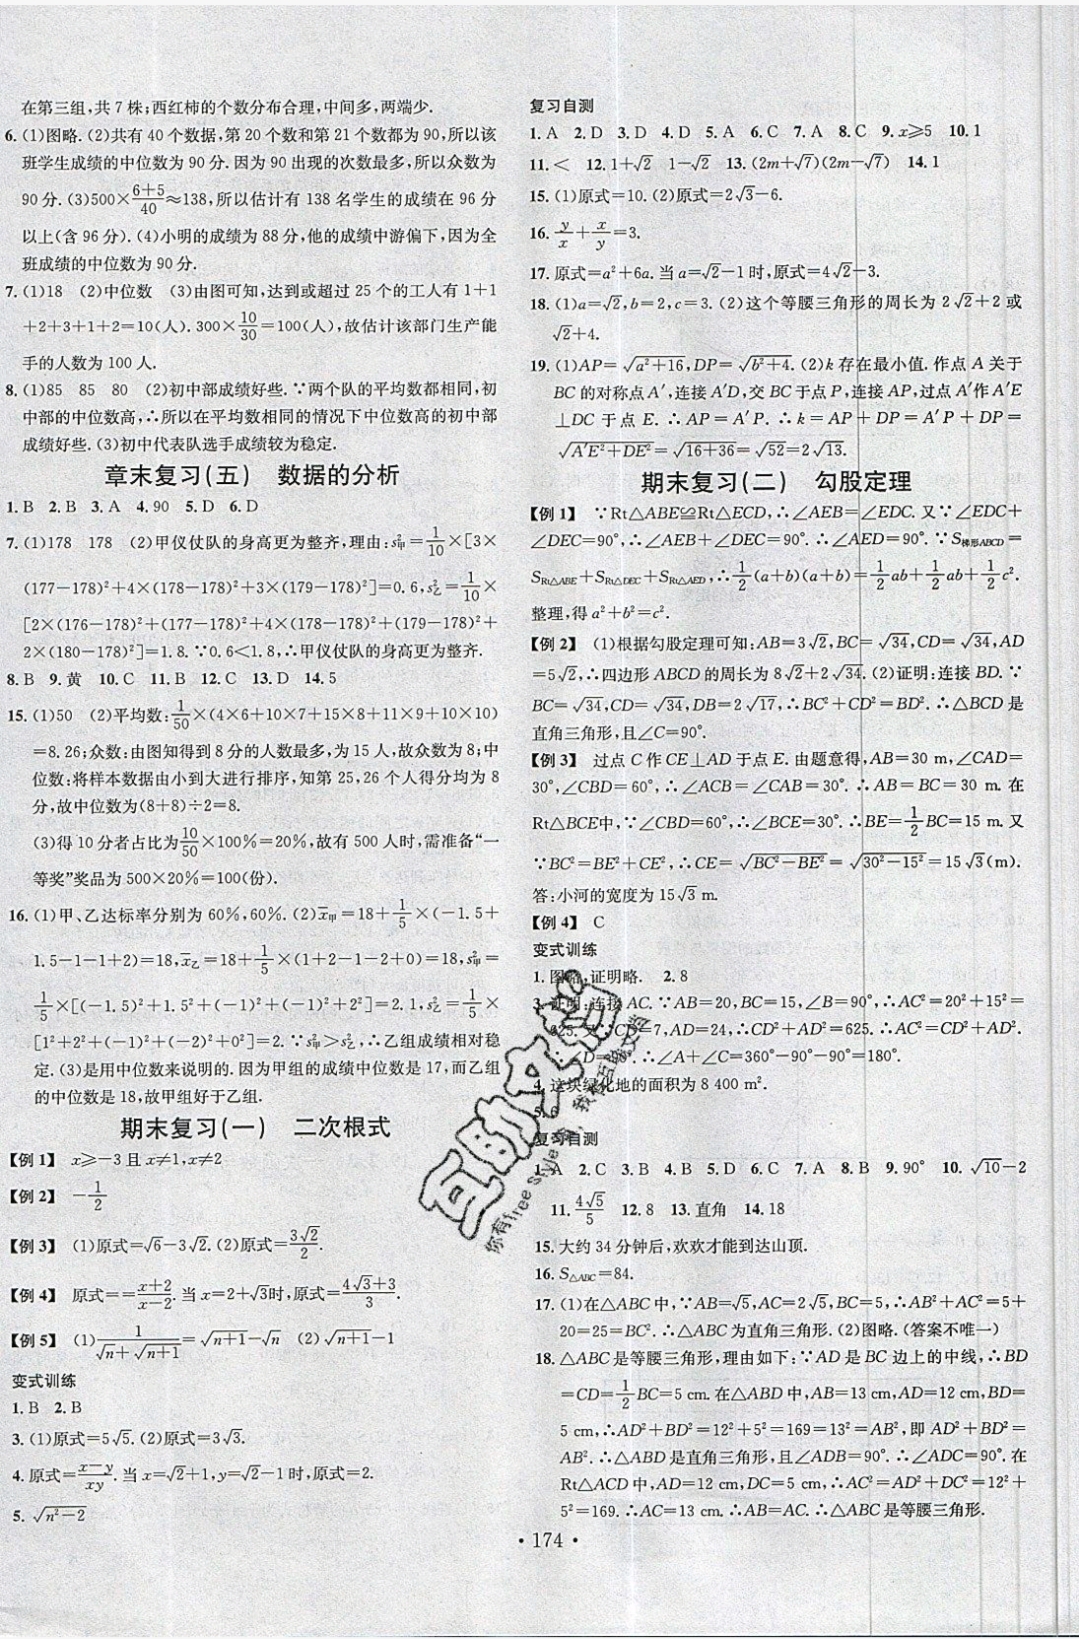 在第三组,共7株;西红柿的个数分布合理,中间多,两端少.
6. (1)图略. (2)共有40个数据,第20个数和第21个数都为90,所以该
班学生成绩的中位数为90分. 因为90出现的次数最多,所以众数为
90分. (3)500×(6+5)/40≈138,所以估计有138名学生的成绩在96分
以上(含96分). (4)小明的成绩为88分,他的成绩中游偏下,因为全
班成绩的中位数为90分.
7. (1)18 (2)中位数 (3)由图可知,达到或超过25个的工人有1+1
+2+3+1+2=10(人). 300×10/30=100(人),故估计该部门生产能
手的人数为100人.
8. (1)85 85 80 (2)初中部成绩好些.∵两个队的平均数都相同,初
中部的中位数高,∴所以在平均数相同的情况下中位数高的初中部
成绩好些. (3)初中代表队选手成绩较为稳定.
章末复习(五) 数据的分析
1. B 2. B 3. A 4. 90 5. D 6. D
7. (1)178 178 (2)甲仪仗队的身高更为整齐,理由:s²甲=1/10×[3×
(177-178)²+4×(178-178)²+3×(179-178)²]=0.6,s²乙=1/10×
[2×(176-178)²+(177-178)²+4×(178-178)²+(179-178)²+
2×(180-178)²]=1.8. ∵0.6<1.8,∴甲仪仗队的身高更为整齐.
8. B 9. 黄 10. C 11. B 12. C 13. D 14. 5
15. (1)50 (2)平均数:1/50×(4×6+10×7+15×8+11×9+10×10)
=8.26;众数:由图知得到8分的人数最多,为15人,故众数为8;中
位数:将样本数据由小到大进行排序,知第25,26个人得分均为8
分,故中位数为(8+8)÷2=8.
(3)得10分者占比为10/50×100%=20%,故有500人时,需准备“一
等奖”奖品为500×20%=100(份).
16. (1)甲、乙达标率分别为60%,60%. (2)x̄甲=18+1/5×(-1.5+
1.5-1-1+2)=18,x̄乙=18+1/5×(1+2-1-2+0)=18,s²甲=
1/5×[(-1.5)²+1.5²+(-1)²+(-1)²+2²]=2.1,s²乙=1/5
×[1²+2²+(-1)²+(-2)²+0²]=2. ∵s²甲>s²乙,∴乙组成绩相对稳
定. (3)是用中位数来说明的. 因为甲组的成绩中位数是17,而乙组
的中位数是18,故甲组好于乙组.
期末复习(一) 二次根式
【例1】 x≥-3且x≠1,x≠2
【例2】 -1/2
【例3】 (1)原式=√6-3√2. (2)原式=3√2/2.
【例4】 原式==(x+2)/(x-2). 当x=2+√3时,原式=(4√3+3)/3.
【例5】 (1)1/(√n+√(n+1))=√(n+1)-√n (2)√(n+1)-1
变式训练
1. B 2. B
3. (1)原式=5√5. (2)原式=3√3.
4. 原式=(x-y)/xy. 当x=√2+1,y=√2-1时,原式=2.
5. √(n²-2)
复习自测
1. A 2. D 3. D 4. D 5. A 6. C 7. A 8. C 9. x≥5 10. 1
11. < 12. 1+√2 1-√2 13. (2m+√7)(2m-√7) 14. 1
15. (1)原式=10. (2)原式=2√3-6.
16. y/x+x/y=3.
17. 原式=a²+6a. 当a=√2-1时,原式=4√2-3.
18. (1)a=√2,b=2,c=3. (2)这个等腰三角形的周长为2√2+2或
√2+4.
19. (1)AP=√(a²+16),DP=√(b²+4). (2)k存在最小值. 作点A关于
BC的对称点A′,连接A′D,交BC于点P,连接AP,过点A′作A′E
⊥DC于点E. ∴AP=A′P. ∴k=AP+DP=A′P+DP=
√(A′E²+DE²)=√(16+36)=√52=2√13.
期末复习(二) 勾股定理
【例1】 ∵Rt△ABE≌Rt△ECD,∴∠AEB=∠EDC. 又∵∠EDC+
∠DEC=90°,∴∠AEB+∠DEC=90°. ∴∠AED=90°. ∵S梯形ABCD=
S Rt△ABE+S Rt△DEC+S Rt△AED,∴1/2(a+b)(a+b)=1/2ab+1/2ab+1/2c².
整理,得a²+b²=c².
【例2】 (1)根据勾股定理可知:AB=3√2,BC=√34,CD=√34,AD
=5√2,∴四边形ABCD的周长为8√2+2√34. (2)证明:连接BD. ∵
BC=√34,CD=√34,DB=2√17,∴BC²+CD²=BD². ∴△BCD是
直角三角形,且∠C=90°.
【例3】 过点C作CE⊥AD于点E. 由题意得,AB=30 m,∠CAD=
30°,∠CBD=60°,∴∠ACB=∠CAB=30°. ∴AB=BC=30 m. 在
Rt△BCE中,∵∠CBD=60°,∴∠BCE=30°. ∴BE=1/2BC=15 m. 又
∵BC²=BE²+CE²,∴CE=√(BC²-BE²)=√(30²-15²)=15√3(m).
答:小河的宽度为15√3 m.
【例4】 C
变式训练
1. 图略,证明略. 2. 8
3. 证明:连接AC. ∵AB=20,BC=15,∠B=90°,∴AC²=20²+15²=
625. 又∵CD=7,AD=24,∴CD²+AD²=625. ∴AC²=CD²+AD².
∴∠D=90°. ∴∠A+∠C=360°-90°-90°=180°.
4. 这块绿化地的面积为8 400 m².
5.
复习自测
1. A 2. C 3. B 4. B 5. D 6. C 7. A 8. B 9. 90° 10. √10-2
11. 4√5/5 12. 8 13. 直角 14. 18
15. 大约34分钟后,欢欢才能到达山顶.
16. S△ABC=84.
17. (1)在△ABC中,∵AB=√5,AC=2√5,BC=5,∴AB²+AC²=5+
20=25=BC²,∴△ABC为直角三角形. (2)图略. (答案不唯一)
18. △ABC是等腰三角形,理由如下:∵AD是BC边上的中线,∴BD
=CD=1/2BC=5 cm. 在△ABD中,AB=13 cm,AD=12 cm,BD=
5 cm,∴AD²+BD²=12²+5²=169=13²=AB²,即AD²+BD²=
AB². ∴△ABD是直角三角形,且∠ADB=90°. ∴∠ADC=90°. 在
Rt△ACD中,AD=12 cm,DC=5 cm,∴AC²=AD²+DC²=12²+
5²=169. ∴AC=13 cm,∴AB=AC. ∴△ABC是等腰三角形.
互助文档
你有free style, 我有互助文档
• 174 •